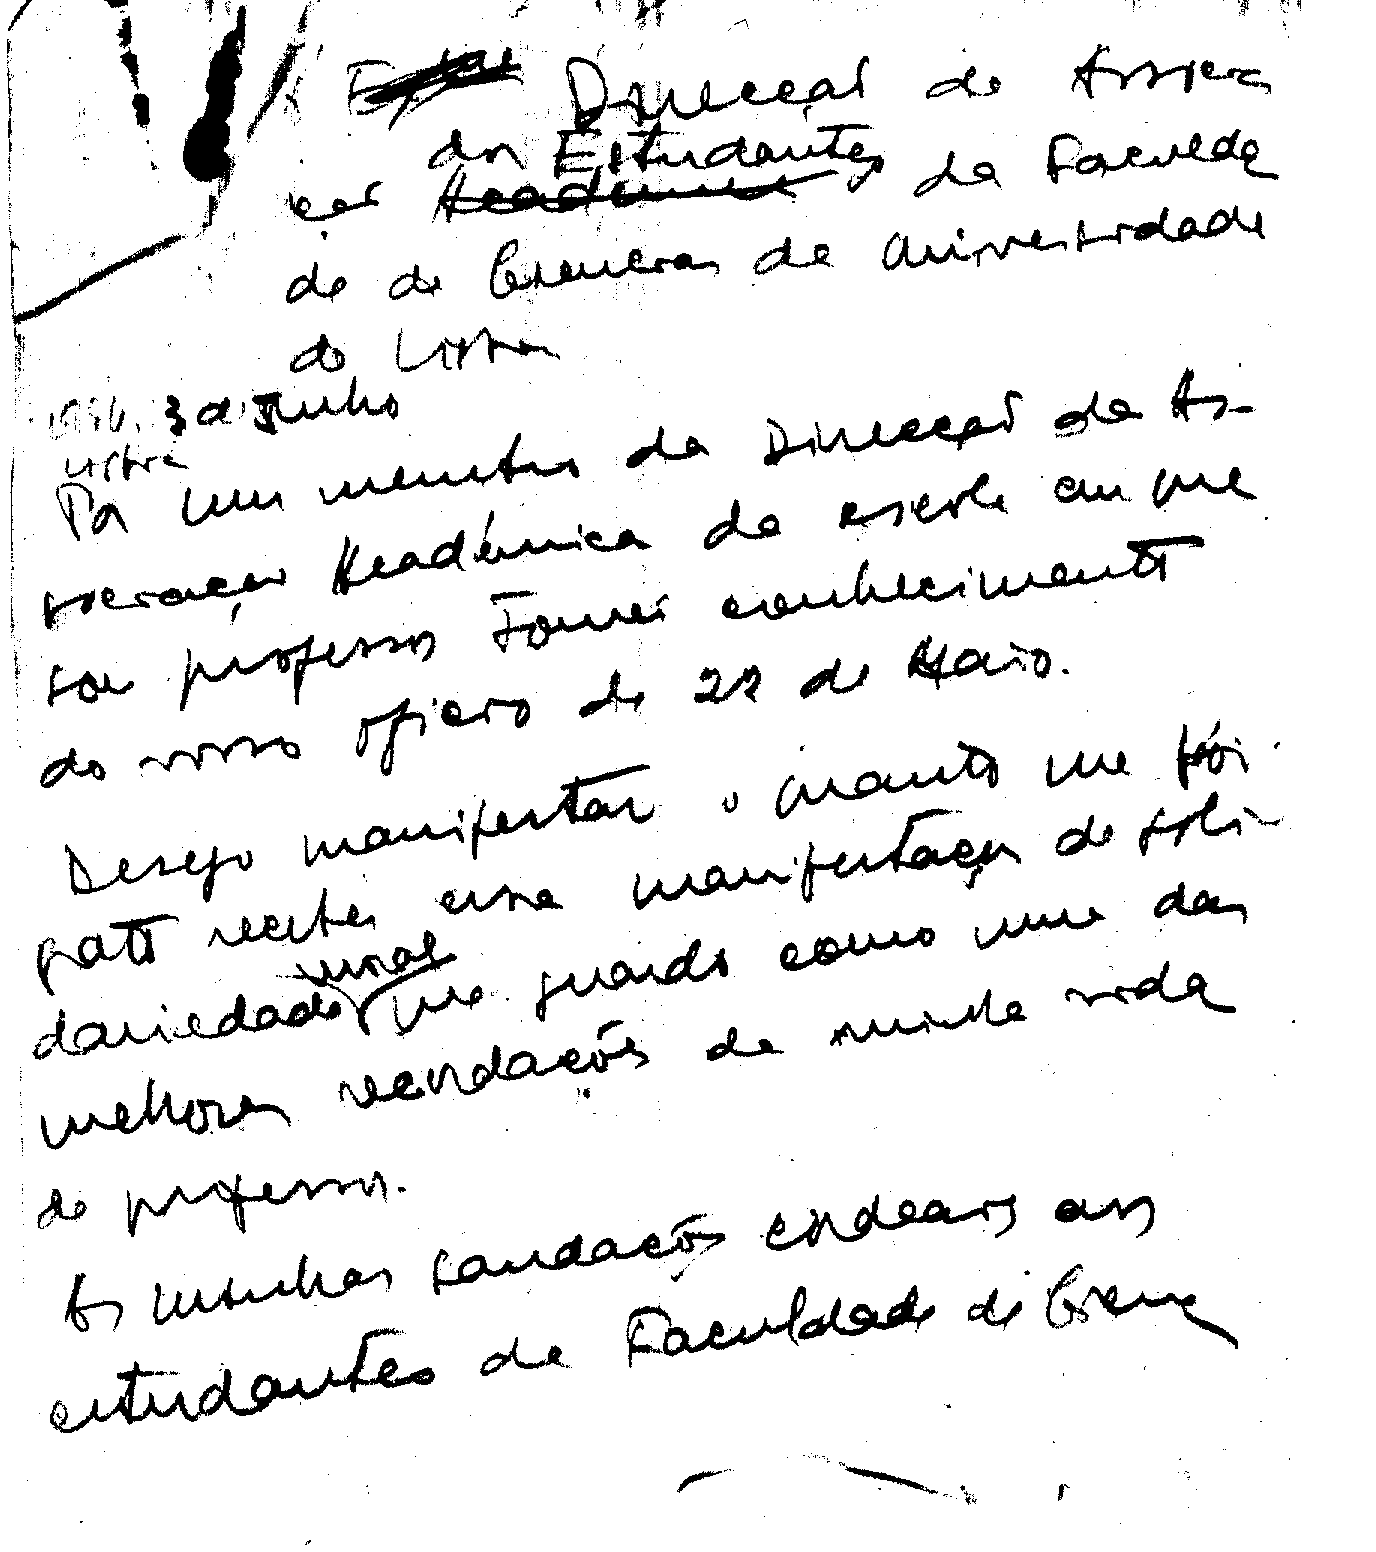 Direcção da Associa
dos Estudantes
ção Académica da Faculda
de de Ciencias da Universidade
de Lisboa
3 de Junho
Lisboa
Por um membro da Direcção da As-
sociação Académica da escola em que
sou professor tomei conhecimento
do vosso oficio de 22 de Maio.
Desejo manifestar o quanto me foi
grato receber essa manifestação de soli-
moral
dariedade que guardo como uma das
melhores recordações da minha vida
de professor.
As minhas saudações cordeais aos
estudantes da Faculdade de Cienc